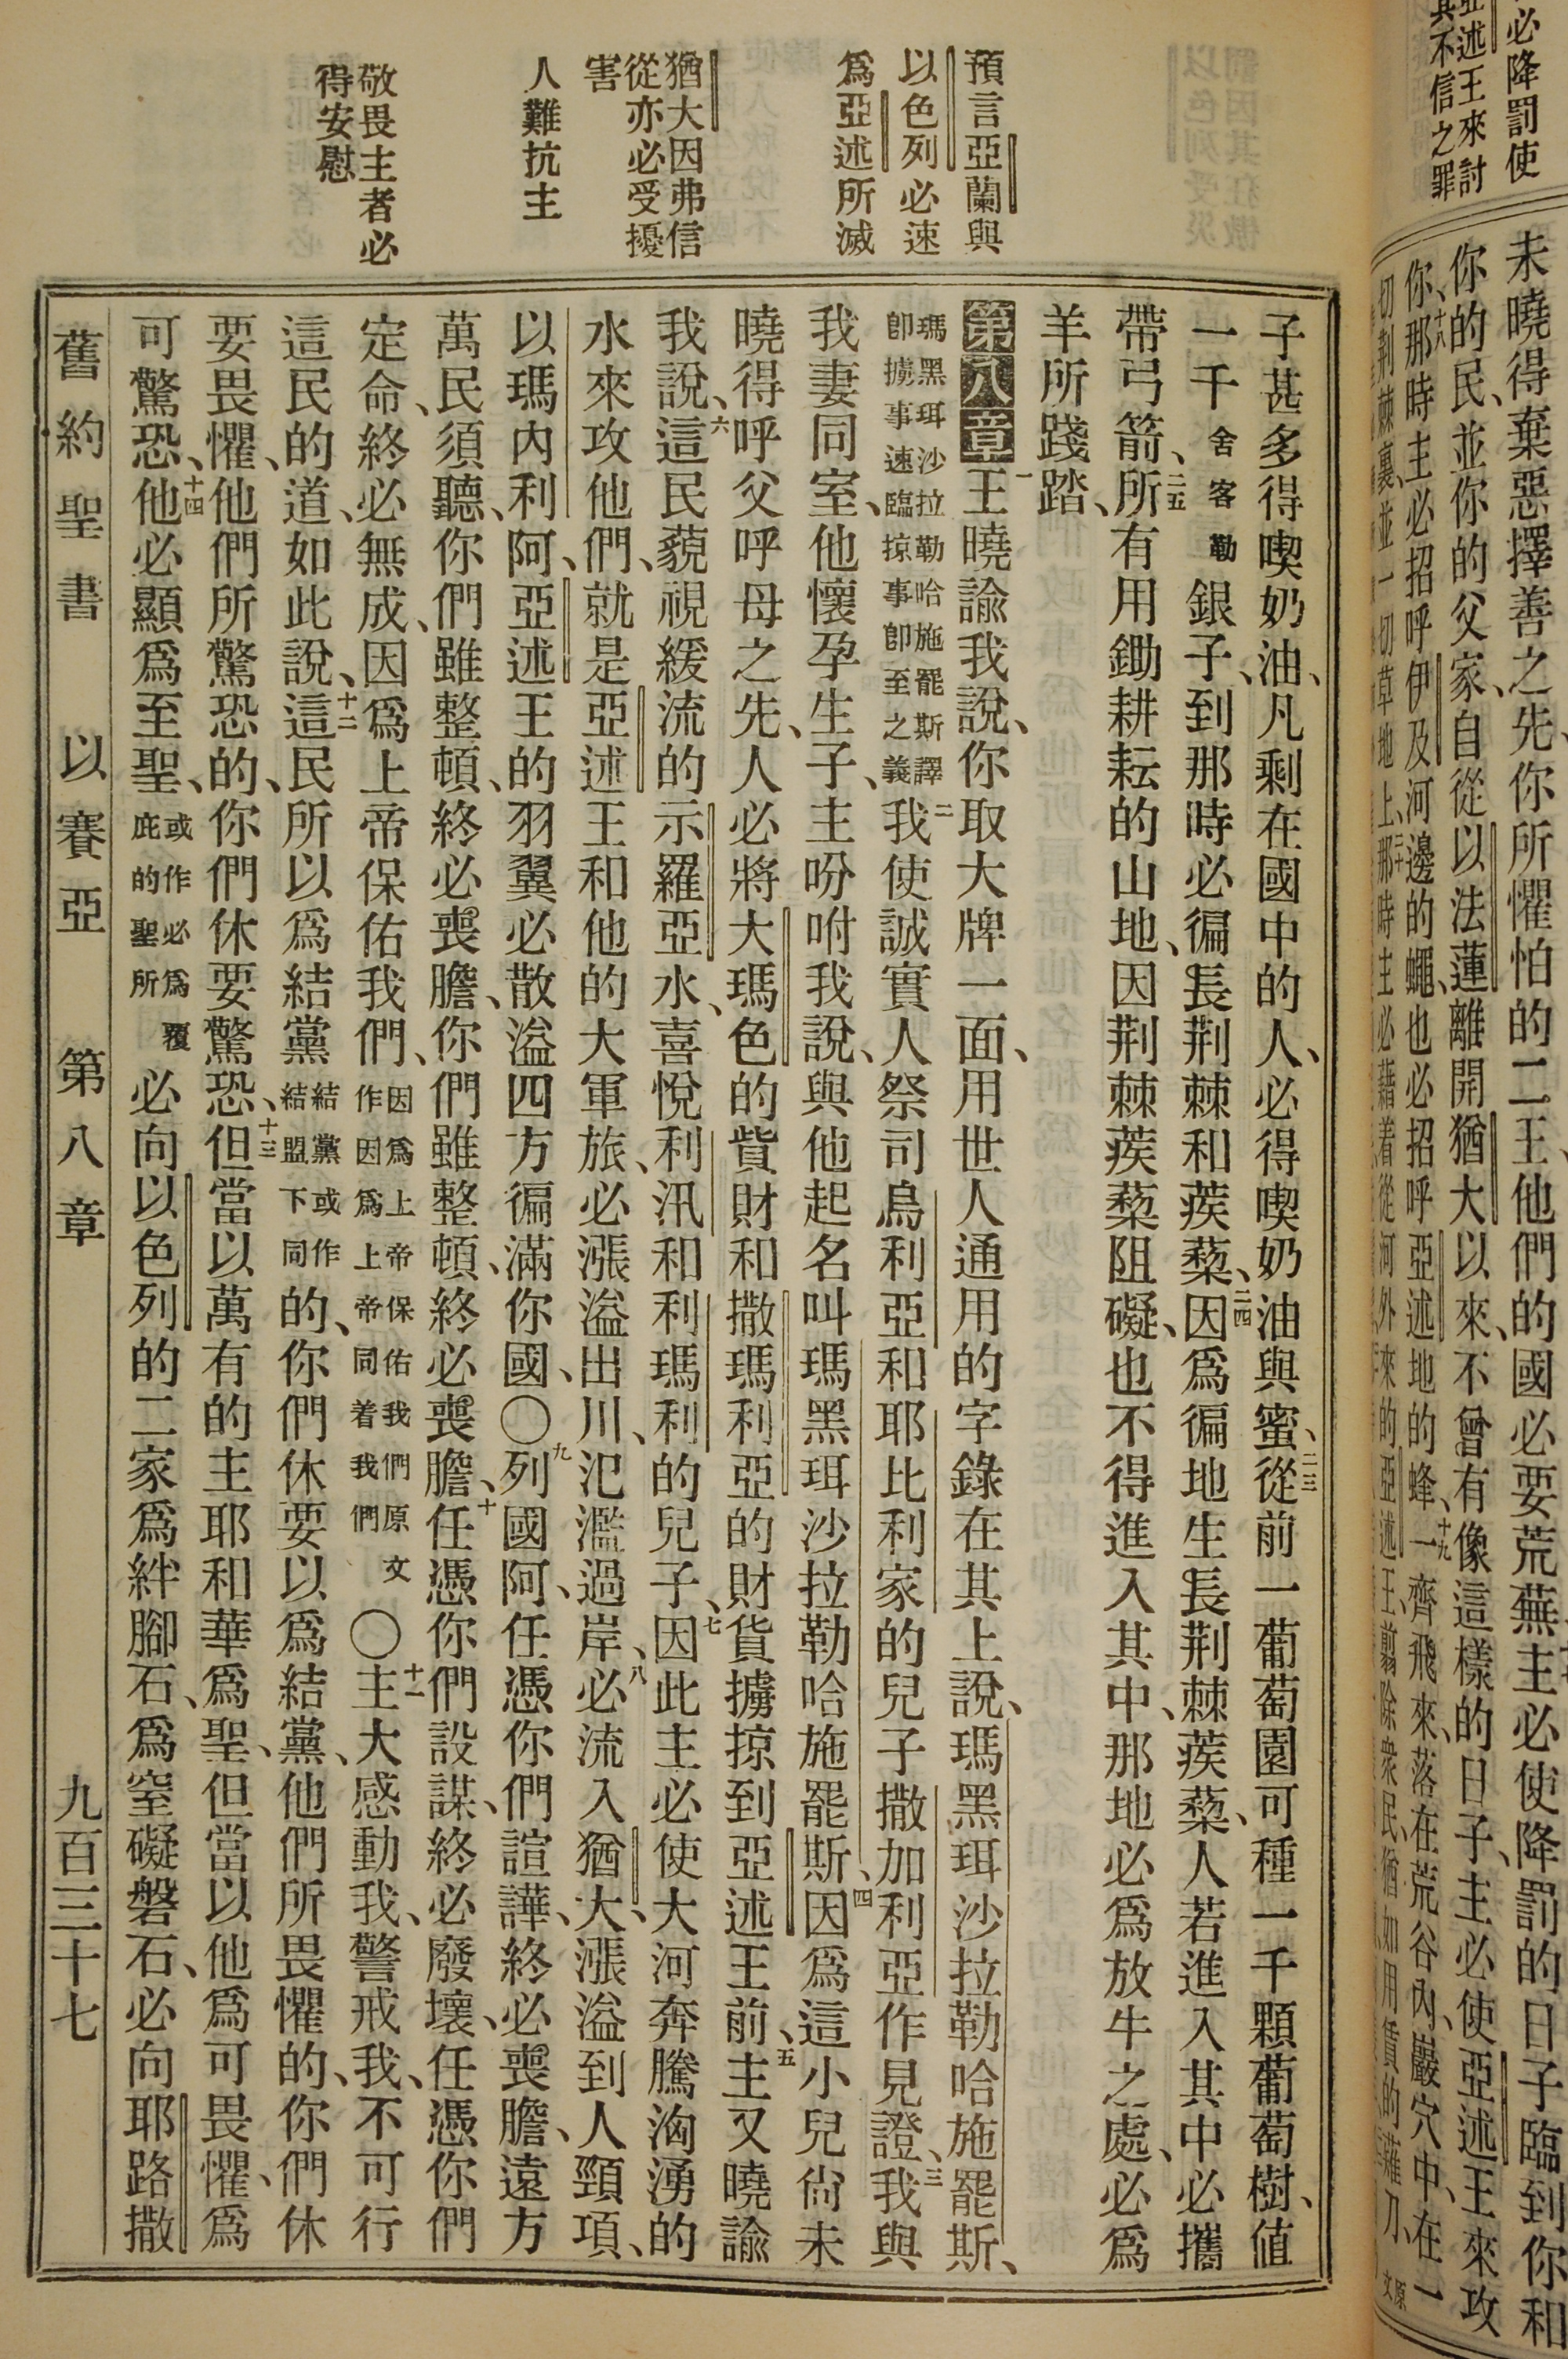 必降罰使
亞述王來討
其不信之罪
未曉得棄惡擇善之先、你所懼怕的二王、他們的國必要荒蕪、主必使降罰的日子臨到你和
你的民、並你的父家、自從以法蓮離開猶大以來、不曾有像這樣的日子、主必使亞述王來攻
你、十八那時主必招呼伊及河邊的蠅、也必招呼亞述地的蜂、十九一齊飛來、落在荒谷內、巖穴中、在一
切荆棘裏、並一切草地上、二十那時主必藉着從河外來的亞述王、翦除衆民、猶如用賃的薙刀、原文
預言亞蘭與
以色列必速
爲亞述所滅
猶大因弗信
從亦必受擾
害
人難抗主
敬畏主者必
得安慰
子甚多得喫奶油、凡剩在國中的人、必得喫奶油與蜜、二三從前一葡萄園可種一千顆葡萄樹、值
一千舍客勒銀子、到那時必徧長荆棘和蒺蔾、二四因爲徧地生長荆棘蒺蔾、人若進入其中必攜
帶弓箭、二五所有用鋤耕耘的山地、因荆棘蒺蔾阻礙、也不得進入其中、那地必爲放牛之處、必爲
羊所踐踏、
第八章一王曉諭我說、你取大牌一面、用世人通用的字錄在其上說、瑪黑珥沙拉勒哈施罷斯、
瑪黑珥沙拉勒哈施罷斯譯卽擄事速臨掠事卽至之義二我使誠實人祭司烏利亞和耶比利家的兒子撒加利亞作見證、三我與
我妻同室、他懷孕生子、主吩咐我說、與他起名叫瑪黑珥沙拉勒哈施罷斯、四因爲這小兒尙未
曉得呼父呼母之先、人必將大瑪色的貲財和撒瑪利亞的財貨擄掠到亞述王前、五主又曉諭
我說、六這民藐視緩流的示羅亞水、喜悅利汛和利瑪利的兒子、七因此主必使大河奔騰洶湧的
水來攻他們、就是亞述王和他的大軍旅、必漲溢出川、氾濫過岸、八必流入猶大、漲溢到人頸項、
以瑪內利阿、亞述王的羽翼必散溢四方徧滿你國、〇九列國阿、任憑你們諠譁、終必喪膽、遠方
萬民須聽、你們雖整頓、終必喪膽、你們雖整頓、終必喪膽、十任憑你們設謀、終必廢壞、任憑你們
定命、終必無成、因爲上帝保佑我們、因爲上帝保佑我們原文作因爲上帝同着我們〇十一主大感動我、警戒我、不可行
這民的道、如此說、十二這民所以爲結黨結黨或作結盟下同的、你們休要以爲結黨、他們所畏懼的、你們休
要畏懼、他們所驚恐的、你們休要驚恐、十三但當以萬有的主耶和華爲聖、但當以他爲可畏懼、爲
可驚恐、十四他必顯爲至聖、或作必爲覆庇的聖所必向以色列的二家爲絆腳石、爲窒礙磐石、必向耶路撒
舊約聖書 以賽亞 第八章 九百三十七